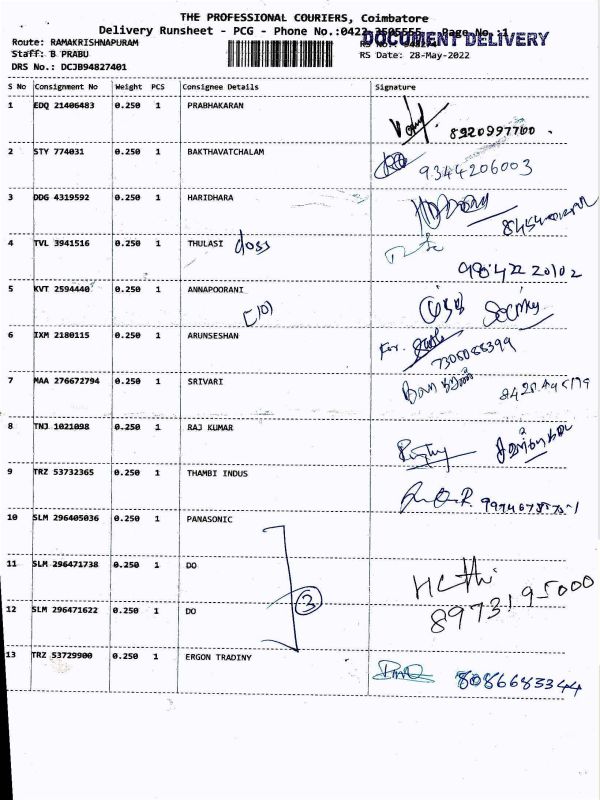 THE PROFESSIONAL COURIERS, Coimbatore
Delivery Runsheet - PCG - Phone No.:0422 Page No.:1
DOCUMENT DELIVERY
Route: RAMAKRISHNAPURAM
Staff: B PRABU
RS Date: 28-May-2022
DRS No.: DCJB94827401
S No Consignment No Weight PCS Consignee Details Signature
1 EDQ 21406483 0.250 1 PRABHAKARAN
8920997700
2 STY 774031 0.250 1 BAKTHAVATCHALAM
9344206003
3 DDG 4319592 0.250 1 HARIDHARA
4 TVL 3941516 0.250 1 THULASI doss
98422 20102
5 KVT 2594440 0.250 1 ANNAPOORANI
(10)
6 IXM 2180115 0.250 1 ARUNSESHAN
For.
7308088399
7 MAA 276672794 0.250 1 SRIVARI
8 TNJ 1021098 0.250 1 RAJ KUMAR
9 TRZ 53732365 0.250 1 THAMBI INDUS
10 SLM 296405036 0.250 1 PANASONIC
11 SLM 296471738 0.250 1 DO
3
12 SLM 296471622 0.250 1 DO
8973195000
13 TRZ 53729900 0.250 1 ERGON TRADINY
8086683344